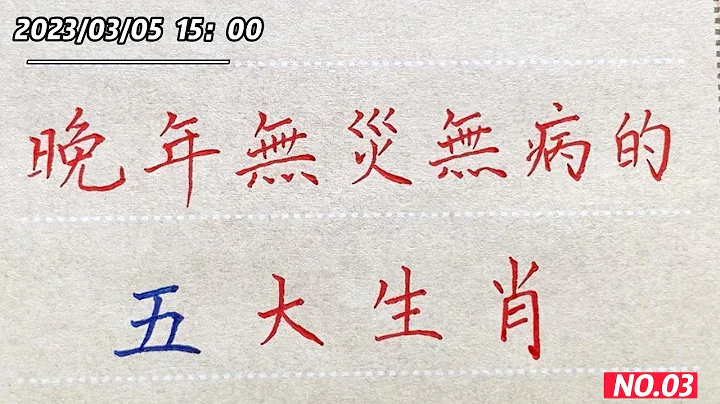 2023/03/05 15: 00
晚年無災無病的
五大生肖
NO.03